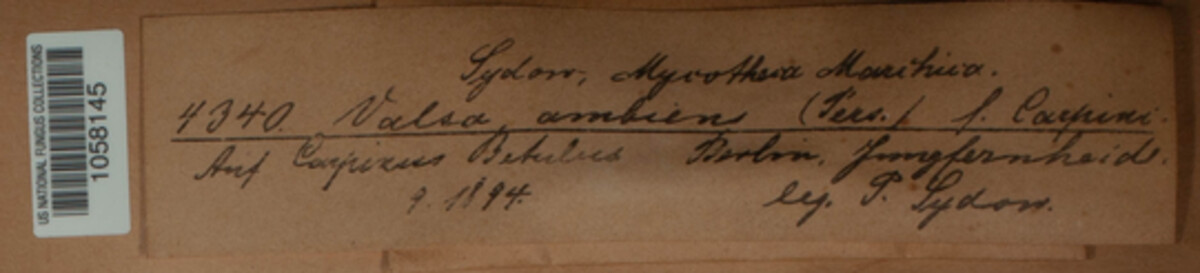 US NATIONAL FUNGUS COLLECTIONS
1058145
Sydow, Mycotheca Marchica.
4340. Valsa ambiens (Pers.) f. Carpini.
Auf Carpinus Betulus Berlin, Jungfernheide.
9. 1894. leg. P. Sydow.